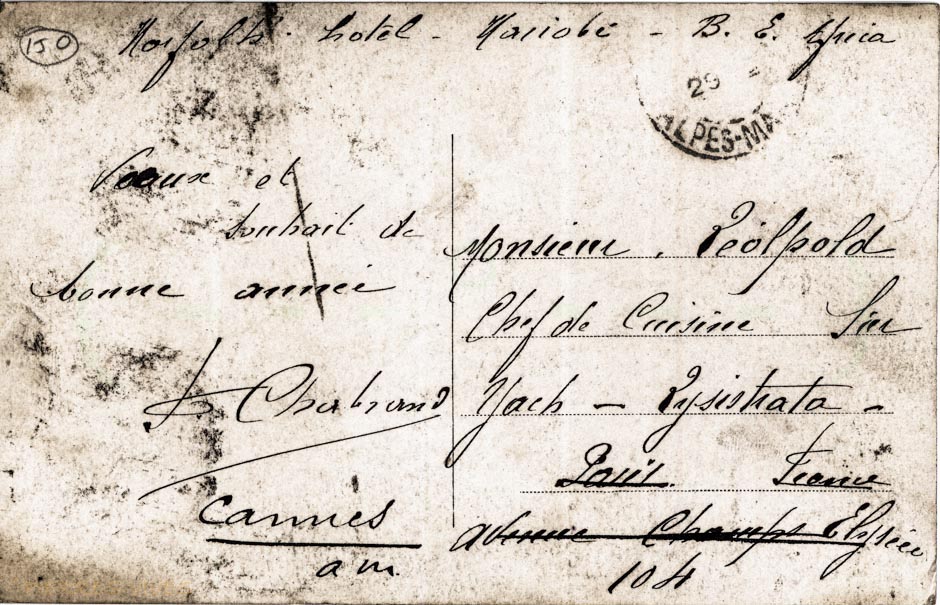 150
Norfolk - hotel - Nairobi - B. E. Africa
29
ALPES-MA
Voeux et
souhait de
bonne année
Chabrand
Cannes
a m.
Monsieur. Léolpold
Chef de Cuisine Sur
Yach - Lysistrata -
Paris. France
avenue Champs Elysée
104